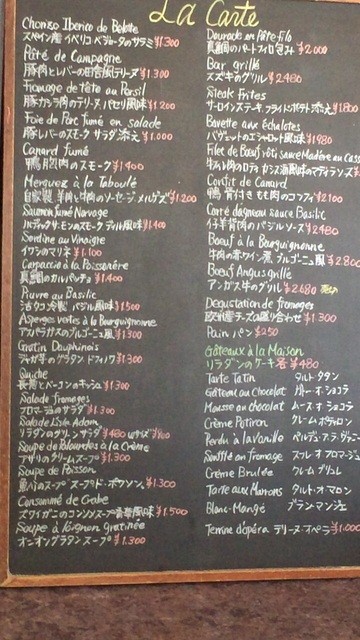 La Carte
Chorizo Iberico de Bellota
スペイン産 イベリコ ベジョータのサラミ ¥1.300
Pâté de Campagne
豚肉とレバーの田舎風テリーヌ ¥1.300
Fromage de tête au Persil
豚カシラ肉のテリーヌ パセリ風味 ¥1.200
Foie de Porc fumé en salade
豚レバーのスモーク サラダ添え ¥1.000
Canard fumé
鴨胸肉のスモーク ¥1.400
Merguez à la Taboulé
自家製 羊肉と牛肉のソーセージ メルゲーズ ¥1.200
Saumon fumé Norvège
ノルディックサーモンのスモーク ディル風味 ¥1.400
Sardine au Vinaigre
イワシのマリネ ¥1.100
Carpaccio à la Poissonière
真鯛のカルパッチョ ¥1.400
Piuvre au Basilic
活タコ冷製 バジル風味 ¥1.500
Asperges vertes à la Bourguignonne
アスパラガスのブルゴーニュ風 ¥1.300
Gratin Dauphinois
ジャガ芋のグラタン ドフィノワ ¥1.300
Quiche
長葱とベーコンのキッシュ ¥1.300
Salade fromages
フロマージュのサラダ ¥1.300
Salade
リラダンのグリーンサラダ ¥480 Wサイズ ¥900
Soupe de Palourdes à la Crème
アサリのクリームスープ ¥1.300
Soupe de Poisson
魚介のスープ スープ・ド・ポワソン ¥1.300
Consommé de Crabe
ズワイガニのコンソメスープ 香草風味 ¥1.500
Soupe à l'oignon gratinée
オニオングラタンスープ ¥1.300
Daurade en pâte filo
真鯛のパートフィロ包み ¥2.000
Bar grillé
スズキのグリル ¥2.480
Steak Frites
サーロインステーキ、フライドポテト添え ¥1.800
Bavette aux échalotes
バヴェットのエシャロット風味 ¥1.980
Filet de Bœuf rôti sauce Madère au Cass
牛ヒレ肉のロティ カシス風味のマデラソース ¥
Confit de Canard
鴨 骨付きもも肉のコンフィ ¥2.100
Carré d'agneau sauce Basilic
仔羊背肉のバジルソース ¥2.480
Bœuf à la Bourguignonne
牛肉の赤ワイン煮、ブルゴーニュ風 ¥2.800
Bœuf Angus grillé
アンガス牛のグリル ¥2.680
Dégustation de fromages
欧州産チーズの盛り合わせ ¥1.300
Pain パン ¥250
Gâteaux à la Maison
リラダンのケーキ 各 ¥480
Tarte Tatin タルト タタン
Gâteau au Chocolat ガトー オ ショコラ
Mousse au chocolat ムース オ ショコラ
Crème Potiron クレーム ポティロン
Perdu à lavanille ペルデュ ア ラ ヴァニ
Soufflé au Fromage スフレ オ フロマージュ
Crème Brulée クレーム ブリュレ
Tarte aux Marrons タルト・オ・マロン
Blanc-Mangé ブラン・マンジェ
Terrine d'opéra テリーヌ・オペラ ¥1.000